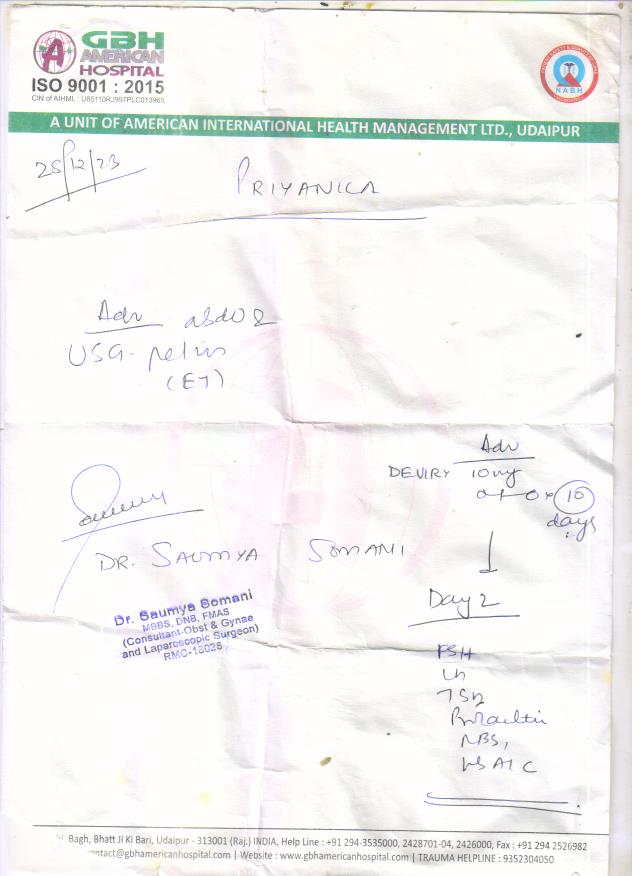 GBH
AMERICAN
HOSPITAL
ISO 9001 : 2015
CIN of AIHML : U85110RJ997PLC013965
NABH
A UNIT OF AMERICAN INTERNATIONAL HEALTH MANAGEMENT LTD., UDAIPUR
28/12/23
PRIYANICA
Adv
USG- pelvis
(ET)
Adv
DEVIRY 10mg
10
days
DR. SAUMYA SOMANI
Day 2
Dr. Saumya Somani
MBBS, DNB, FMAS
(Consultant-Obst & Gynae
and Laparoscopic Surgeon)
RMC-18028
FSH
LH
TSH
Prolactin
RBS,
HbA1C
Bagh, Bhatt Ji Ki Bari, Udaipur - 313001 (Raj.) INDIA, Help Line : +91 294-3535000, 2428701-04, 2426000, Fax : +91 294 2526982
ontact@gbhamericanhospital.com | Website : www.gbhamericanhospital.com | TRAUMA HELPLINE : 9352304050